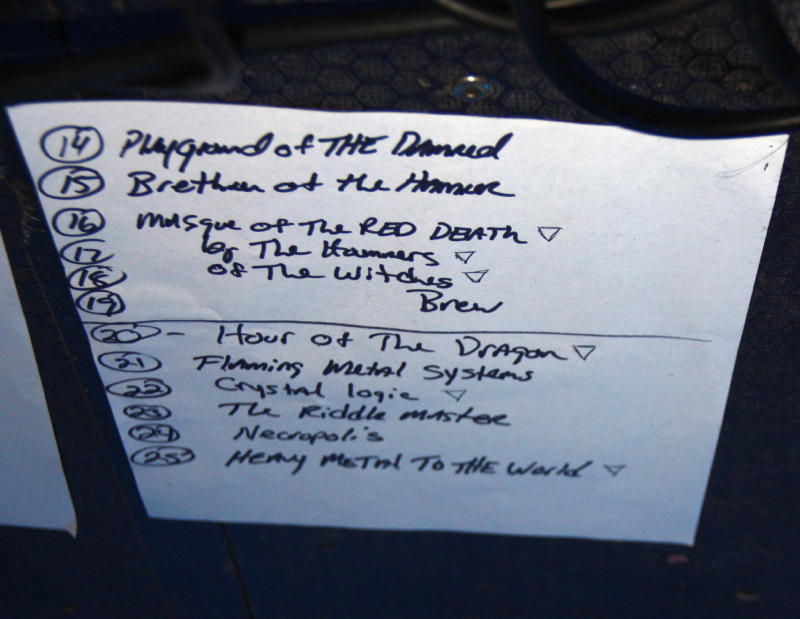 14 Playground of THE Damned
15 Brethren of the Hammer
16 Masque of The RED DEATH ▽
17 by The Hammers ▽
18 of The Witches ▽
19 Brew
20 - Hour of The Dragon ▽
21 Flaming Metal Systems
22 Crystal Logic ▽
23 The Riddle Master
24 Necropolis
25 Heavy Metal To THE World ▽